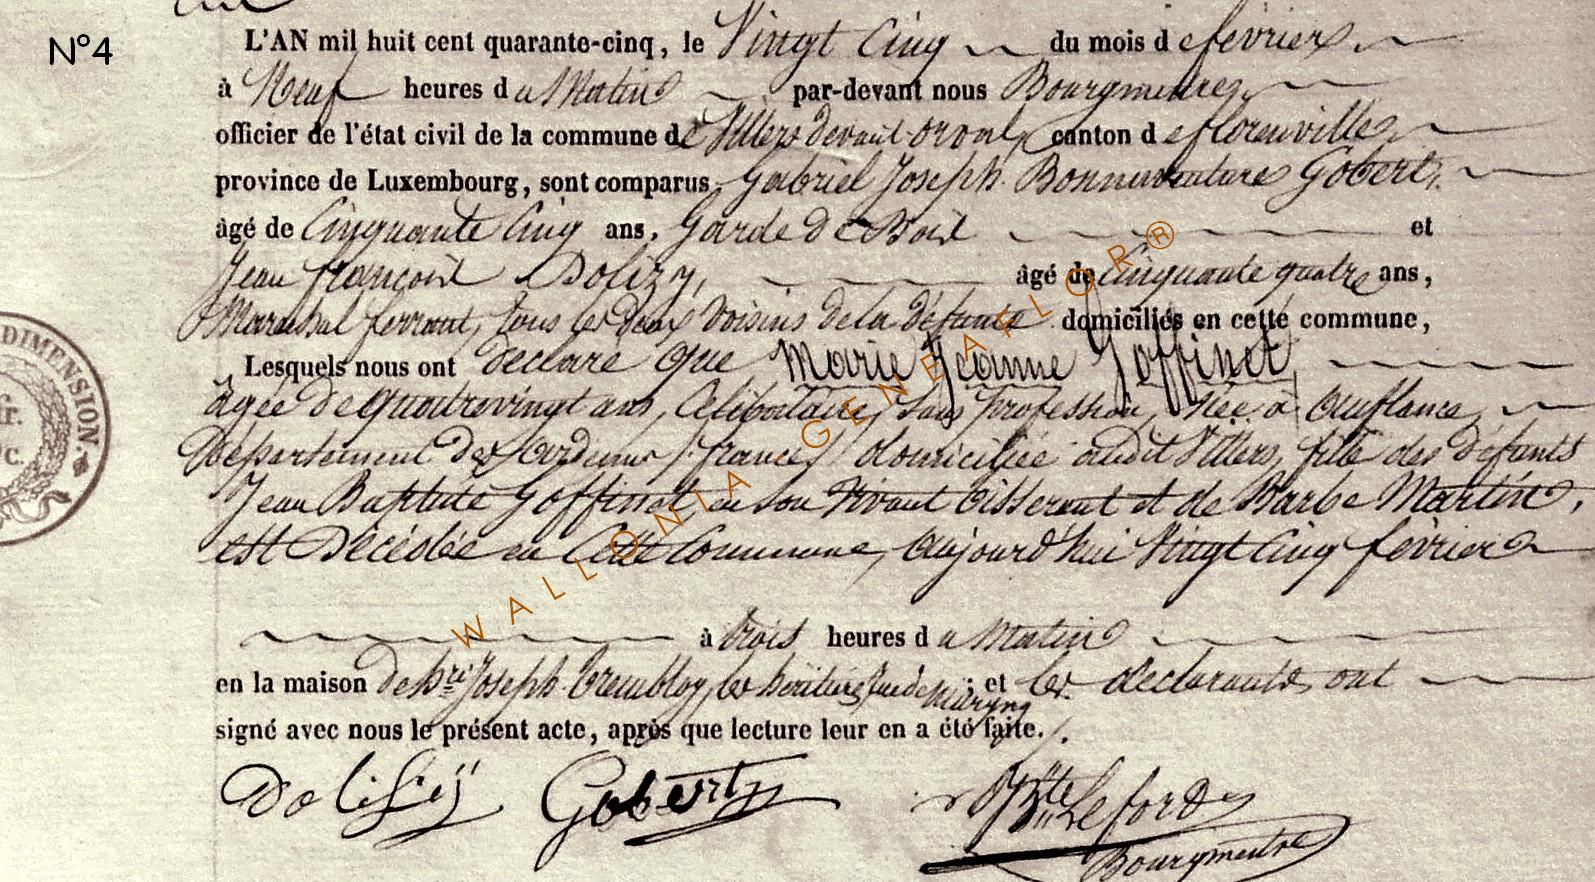 N°4
L'AN mil huit cent quarante-cinq, le Vingt Cinq du mois de fevrier
à Neuf heures du Matin par-devant nous Bourgmestre
officier de l'état civil de la commune de Villers devant orval, canton de florenville
province de Luxembourg, sont comparus Gabriel Joseph Bonnaventure Gobert,
âgé de Cinquante Cinq ans, Garde de Bois et
Jean françois Dolizy, âgé de cinquante quatre ans,
Marechal ferrant, tous les deux Voisins de la défunte domiciliés en cette commune,
Lesquels nous ont declaré que Marie Jeanne Goffinet
âgée de quatrevingt ans, Célibataire, Sans profession, Née à auflance
Département des ardennes, france, domiciliée audit Villers, fille des défunts
Jean Baptiste Goffinet en son Vivant tisserant et de Barbe Martin,
est Décédée en Cette Commune, aujourd'hui Vingt Cinq février
à trois heures du Matin
en la maison de Joseph Trembloy, les héritiers et les declarants ont
signé avec nous le présent acte, après que lecture leur en a été faite.
Dolisÿ Gobert Leford
Bourgmestre
DIMENSION.
fr.
WALLONIA GENEAFLOR®